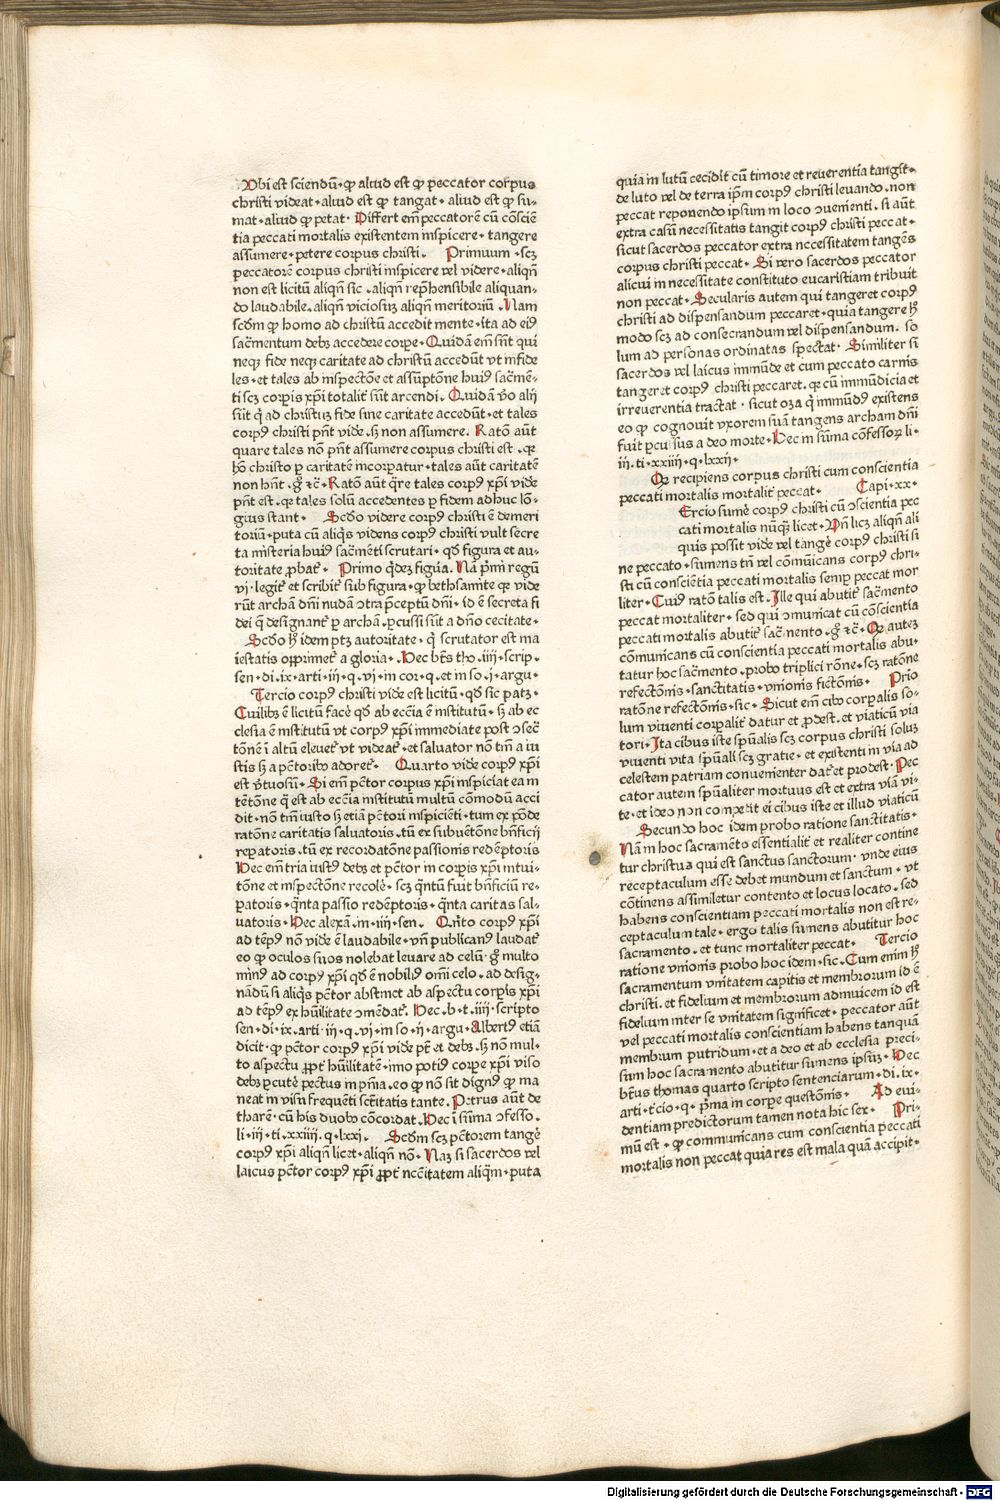 Vbi est sciendū· ꝙ aliud est ꝙ peccator corpus
christi videat· aliud est ꝙ tangat· aliud est ꝙ su-
mat· aliud ꝙ petat· Differt em̄ peccatorē cū cōsciē
tia peccati mortalis existentem inspicere· tangere
assumere· petere corpus christi. Primum· scꝫ
peccatorē corpus christi inspicere vel videre· aliqn̄
non est licitū aliqn̄ sic· aliqn̄ rep̄hensibile aliquan-
do laudabile· aliqn̄ viciosuꝫ aliqn̄ meritoriū· Nam
scd̄m ꝙ homo ad christū accedit mente· ita ad eiꝰ
sac̄mentum debꝫ accedere corpe· Quidā em̄ sūt qui
neqꝫ fide neqꝫ caritate ad christū accedūt vt infide
les· et tales ab inspectōe et assūptōne huiꝰ sac̄mē-
ti scꝫ corpis xp̄i totalit̄ sūt arcendi· Quidā v̄o alij
sūt q̇ ad christuꝫ fide sine caritate accedūt· et tales
corpꝰ christi pn̄t vide· sꝫ non assumere. Ratō aūt
quare tales nō pn̄t assumere corpus christi est· qꝛ
hō christo p caritatē incorpatur· tales aūt caritatē
non hn̄t· g̊ ⁊c̄· Ratō aūt q̄re tales corpꝰ xp̄i vide
pn̄t est· qꝛ tales solū accedentes p fidem adhuc lō-
gius stant· Scd̄o videre corpꝰ christi ē demeri
toriū· puta cū aliq̇s videns corpꝰ christi vult secre
ta misteria huiꝰ sac̄mēti scrutari· qd̄ figura et au-
toritate ꝓbat̄· Primo q̇deꝫ figūa. Nā p̄mi regū
vj· legit̄ et scribit̄ sub figura· ꝙ bethsamite qꝛ vide
rūt archā dn̄i nudā ꝯtra p̄ceptū dn̄i· id ē secreta fi
dei q̄ designant̄ p archā· pcussi sūt a dn̄o cecitate·
Scd̄o hꝫ idem ptꝫ autoritate· q̇ scrutator est ma
iestatis opprimet̄ a gloria· Hec bt̄s tho· iiij· scrip·
sen· di· ix· arti· iij· q· vj· in cor· q· et in so· j· argu·
Tercio corpꝰ christi vide est licitū· qd̄ sic patꝫ·
Cuilibꝫ ē licitū facē qd̄ ab ecc̄ia ē institutū· sꝫ ab ec
clesia ē institutū vt corpꝰ xp̄i immediate post ꝯsec̄
tōnē ī altū eleuet̄ vt videat̄· et saluator nō tm̄ a iu
stis sꝫ a pc̄toribꝰ adoret̄· Quarto vide corpꝰ xp̄i
est v̄tuosū· Si em̄ pc̄tor corpus xp̄i inspiciat ea in
tētōne q̄ est ab ecc̄ia institutū multū cōmodū acci
dit· nō tm̄ iusto sꝫ etiā pc̄tori inspiciēti· tum ex pōde
ratōne caritatis saluatoris· tū ex subuētōne bn̄ficij
repatoris· tū ex recordatōne passionis redēptoris
Hec em̄ tria iustꝰ debꝫ et pc̄tor in corpis xp̄i intui-
tōne et inspectōne recolē· scꝫ q̄ntū fuit bn̄ficiū re-
patoris· q̄nta passio redēptoris· q̄nta caritas sal-
uatoris· Hec alexā· in· iiij· sen. Qn̄to corpꝰ xp̄i
ad tēpꝰ nō vide ē laudabile· vn̄ publicanꝰ laudat̄
eo ꝙ oculos suos nolebat leuare ad celū· g̊ multo
minꝰ ad corpꝰ xp̄i qd̄ ē nobiliꝰ om̄i celo· ad desig-
nādū si aliq̇s pc̄tor abstinet ab aspectu corpis xp̄i
ad tēpꝰ ex hūilitate ꝯmēdat̄· Hec· b· t· iiij· scripto
sen· di· ix· arti· iij· q· vj· in so· ij· argu· Albertꝰ etiā
dicit· ꝙ pc̄tor corpꝰ xp̄i vide pt̄ et debꝫ· sꝫ nō mul-
to aspectu ꝓpt̄ hūilitatē· imo potiꝰ corpe xp̄i viso
debꝫ pcutē pectus in pn̄ia· eo ꝙ nō sit dignꝰ ꝙ ma
neat in visu frequēti sc̄titatis tante· Petrus aūt de
tharē· cū his duobꝰ cōcordat· Hec ī sūma ꝯfesso·
li· iij· ti· xxiiij· q· lxxj· Scd̄m scꝫ pc̄torem tangē
corpꝰ xp̄i aliqn̄ licet· aliqn̄ nō· Naꝫ si sacerdos vel
laicus pc̄tor corpꝰ xp̄i ꝓpt̄ ncc̄itatem aliq̄m· puta
quia in lutū cecidit cū timore et reuerentia tangit·
de luto vel de terra ip̄m corpꝰ christi leuando· non
peccat reponendo ipsum in loco ꝯuenienti. si aūt
extra casū necessitatis tangit corpꝰ christi peccat·
sicut sacerdos peccator extra necessitatem tangēs
corpus christi peccat· Si vero sacerdos peccator
alicui in necessitate constituto eucaristiam tribuit
non peccat· Secularis autem qui tangeret corpꝰ
christi ad dispensandum peccaret· quia tangere hꝫ
modo scꝫ ad consecrandum vel dispensandum· so
lum ad personas ordinatas spectat· Similiter si
sacerdos vel laicus immūde et cum peccato carnis
tangeret corpꝰ christi peccaret· qꝛ cū immūdicia et
irreuerentia tractat· sicut oza q̇ immūdꝰ existens
eo ꝙ cognouit vxorem suā tangens archam dn̄i
fuit pcussus a deo morte· Hec in sūma cōfessoꝝ li·
iij· ti· xxiiij· q· lxxij·
Qꝛ recipiens corpus christi cum conscientia
peccati mortalis mortalit̄ peccat· Capi· xx·
Ercio sumē corpꝰ christi cū ꝯscientia pec
cati mortalis nūqꝫ licet· Vn̄ licꝫ aliqn̄ ali
quis possit vide vel tangē corpꝰ christi si
ne peccato· sumens tn̄ vel cōmūicans corpꝰ chri-
sti cū consciētia peccati mortalis semp peccat mor
liter· Cuiꝰ ratō talis est· Ille qui abutit̄ sac̄mento
peccat mortaliter· sed qui ꝯmunicat cū cōscientia
peccati mortalis abutit̄ sac̄mento· g̊ ⁊c̄· Qꝛ auteꝫ
cōmunicans cū conscientia peccati mortalis abu-
tatur hoc sac̄mento· probo triplici rōne· scꝫ ratōne
refectōnis· sanctitatis· vnionis fictōnis· Prio
ratōne refectōnis· sic· Sicut em̄ cibꝰ corpalis so-
lum viuenti corpalit̄ datur et ꝓdest· et viaticū via
tori· Ita cibus iste spūalis scꝫ corpus christi soluꝫ
viuenti vita spūali scꝫ gratie· et existenti in via ad
celestem patriam conuenienter dat̄ et prodest· Pec
cator autem spūaliter mortuus est et extra viā vi-
te· et ideo non competit ei cibus iste et illud viaticū
Secundo hoc idem probo ratione sanctitatis·
Nā in hoc sacramēto essentialit̄ et realiter contine
tur christus qui est sanctus sanctorum· vnde eius
receptaculum esse debet mundum et sanctum· vt
cōtinens assimiletur contento et locus locato· sed
habens conscientiam peccati mortalis non est re-
ceptaculum tale· ergo talis sumens abutitur hoc
sacramento· et tunc mortaliter peccat· Tercio
ratione vnionis probo hoc idem· sic· Cum enim hꝫ
sacramentum vnitatem capitis et membrorum id ē
christi· et fidelium et membrorum adinuicem id est
fidelium inter se vnitatem significet· peccator aūt
vel peccati mortalis conscientiam habens tanquā
membrum putridum· et a deo et ab ecclesia preci-
sum hoc sacramento abutitur sumens ipsuꝫ· Hec
bt̄us thomas quarto scripto sentenciarum· di· ix·
arti· t̄cio· q· p̄ma in corpe questōnis· Ad eui-
dentiam predictorum tamen nota hic sex· Pri-
mū est· ꝙ communicans cum conscientia peccati
mortalis non peccat quia res est mala quā accipit·
Digitalisierung gefördert durch die Deutsche Forschungsgemeinschaft - DFG